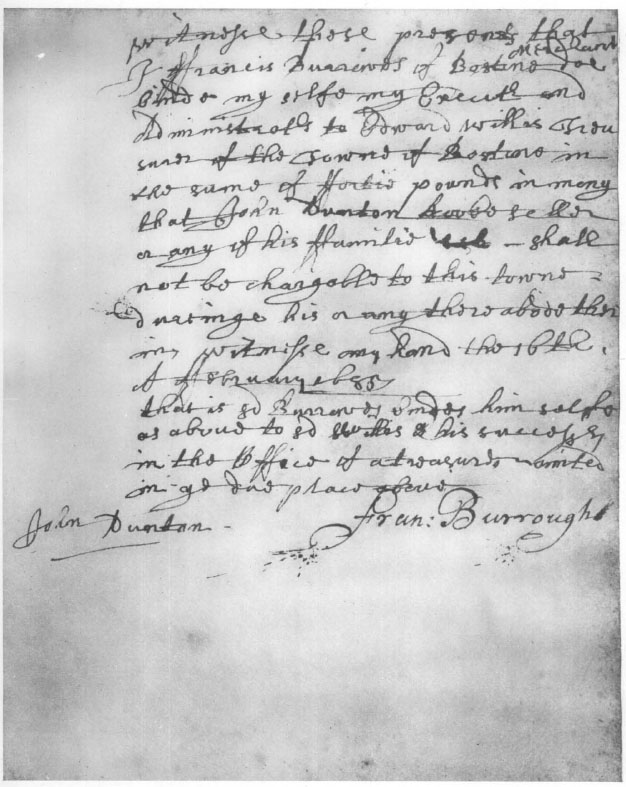 witnesse these presents that
Merchant
I ffrancis Burrowes of Bostone doe
binde my selfe my Execut and
Administrats to Edward Willis Trea
surer of the Towne of Bostone in
the same of ffortie pounds in mony
that John Dunton booke seller
or any of his ffamilie shall
not be chargable to this towne
duringe his or any there abode ther
in, witnesse my hand the 16th.
of february 1685
that is sd Burrowes bindes him selfe
as above to sd Willis & his success
in the Office of a treasurer
in place above
John Dunton
Fran: Burroughs